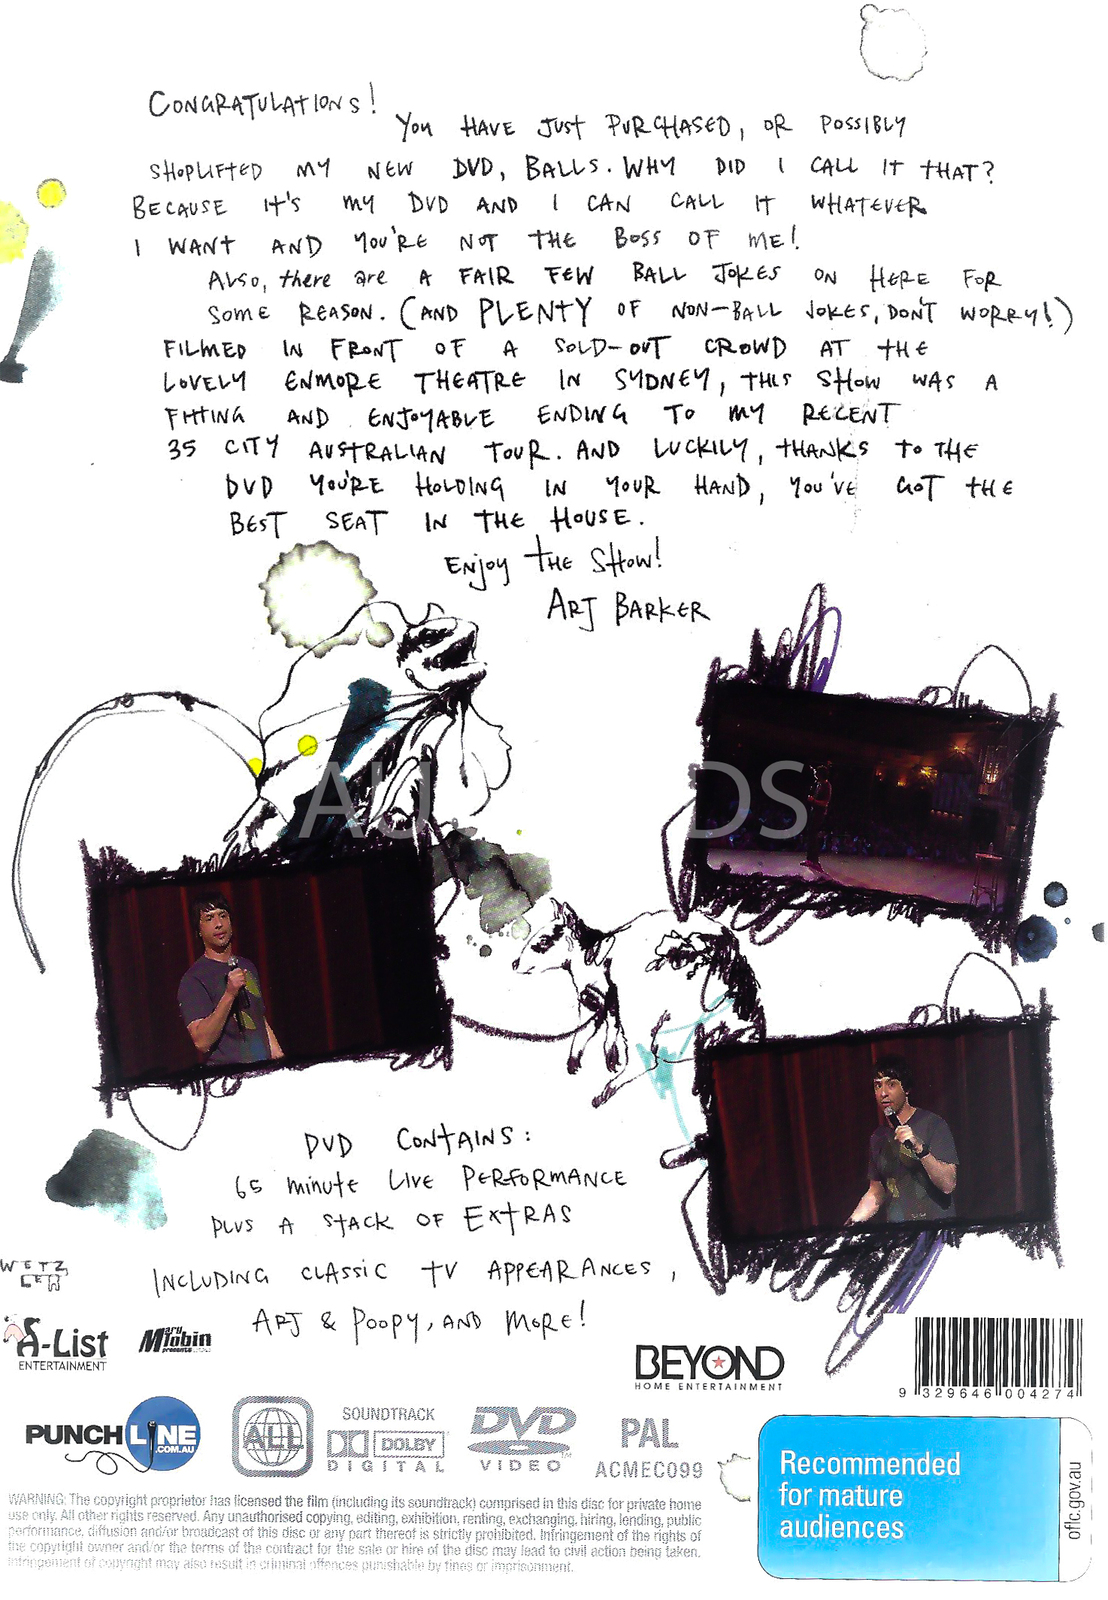 CONGRATULATIONS!
YOU HAVE JUST PURCHASED, OR POSSIBLY
SHOPLIFTED MY NEW DVD, BALLS. WHY DID I CALL IT THAT?
BECAUSE IT'S MY DVD AND I CAN CALL IT WHATEVER
I WANT AND YOU'RE NOT THE BOSS OF ME!
ALSO, there are A FAIR FEW BALL JOKES ON HERE FOR
SOME REASON. (AND PLENTY OF NON-BALL JOKES, DON'T WORRY!)
FILMED IN FRONT OF A SOLD-OUT CROWD AT THE
LOVELY ENMORE THEATRE IN SYDNEY, THIS SHOW WAS A
FITTING AND ENJOYABLE ENDING TO MY RECENT
35 CITY AUSTRALIAN TOUR. AND LUCKILY, THANKS TO THE
DVD YOU'RE HOLDING IN YOUR HAND, YOU'VE GOT THE
BEST SEAT IN THE HOUSE.
ENJOY THE SHOW!
ARJ BARKER
AU DS
DVD CONTAINS:
65 minute LIVE PERFORMANCE
PLUS A STACK OF EXTRAS
INCLUDING CLASSIC TV APPEARANCES,
ARJ & POOPY, AND MORE!
WETZ
LER
A-List
ENTERTAINMENT
Mary Tobin
presents
BEYOND
HOME ENTERTAINMENT
9 329646 004274
PUNCHLINE
.COM.AU
ALL
SOUNDTRACK
DOLBY
DIGITAL
DVD
VIDEO
PAL
ACMEC099
Recommended
for mature
audiences
oflc.gov.au
WARNING: The copyright proprietor has licensed the film (including its soundtrack) comprised in this disc for private home
use only. All other rights reserved. Any unauthorised copying, editing, exhibition, renting, exchanging, hiring, lending, public
performance, diffusion and/or broadcast of this disc or any part thereof is strictly prohibited. Infringement of the rights of
the copyright owner and/or the terms of the contract for the sale or hire of the disc may lead to civil action being taken.
Infringement of copyright may also result in criminal offences punishable by fines or imprisonment.